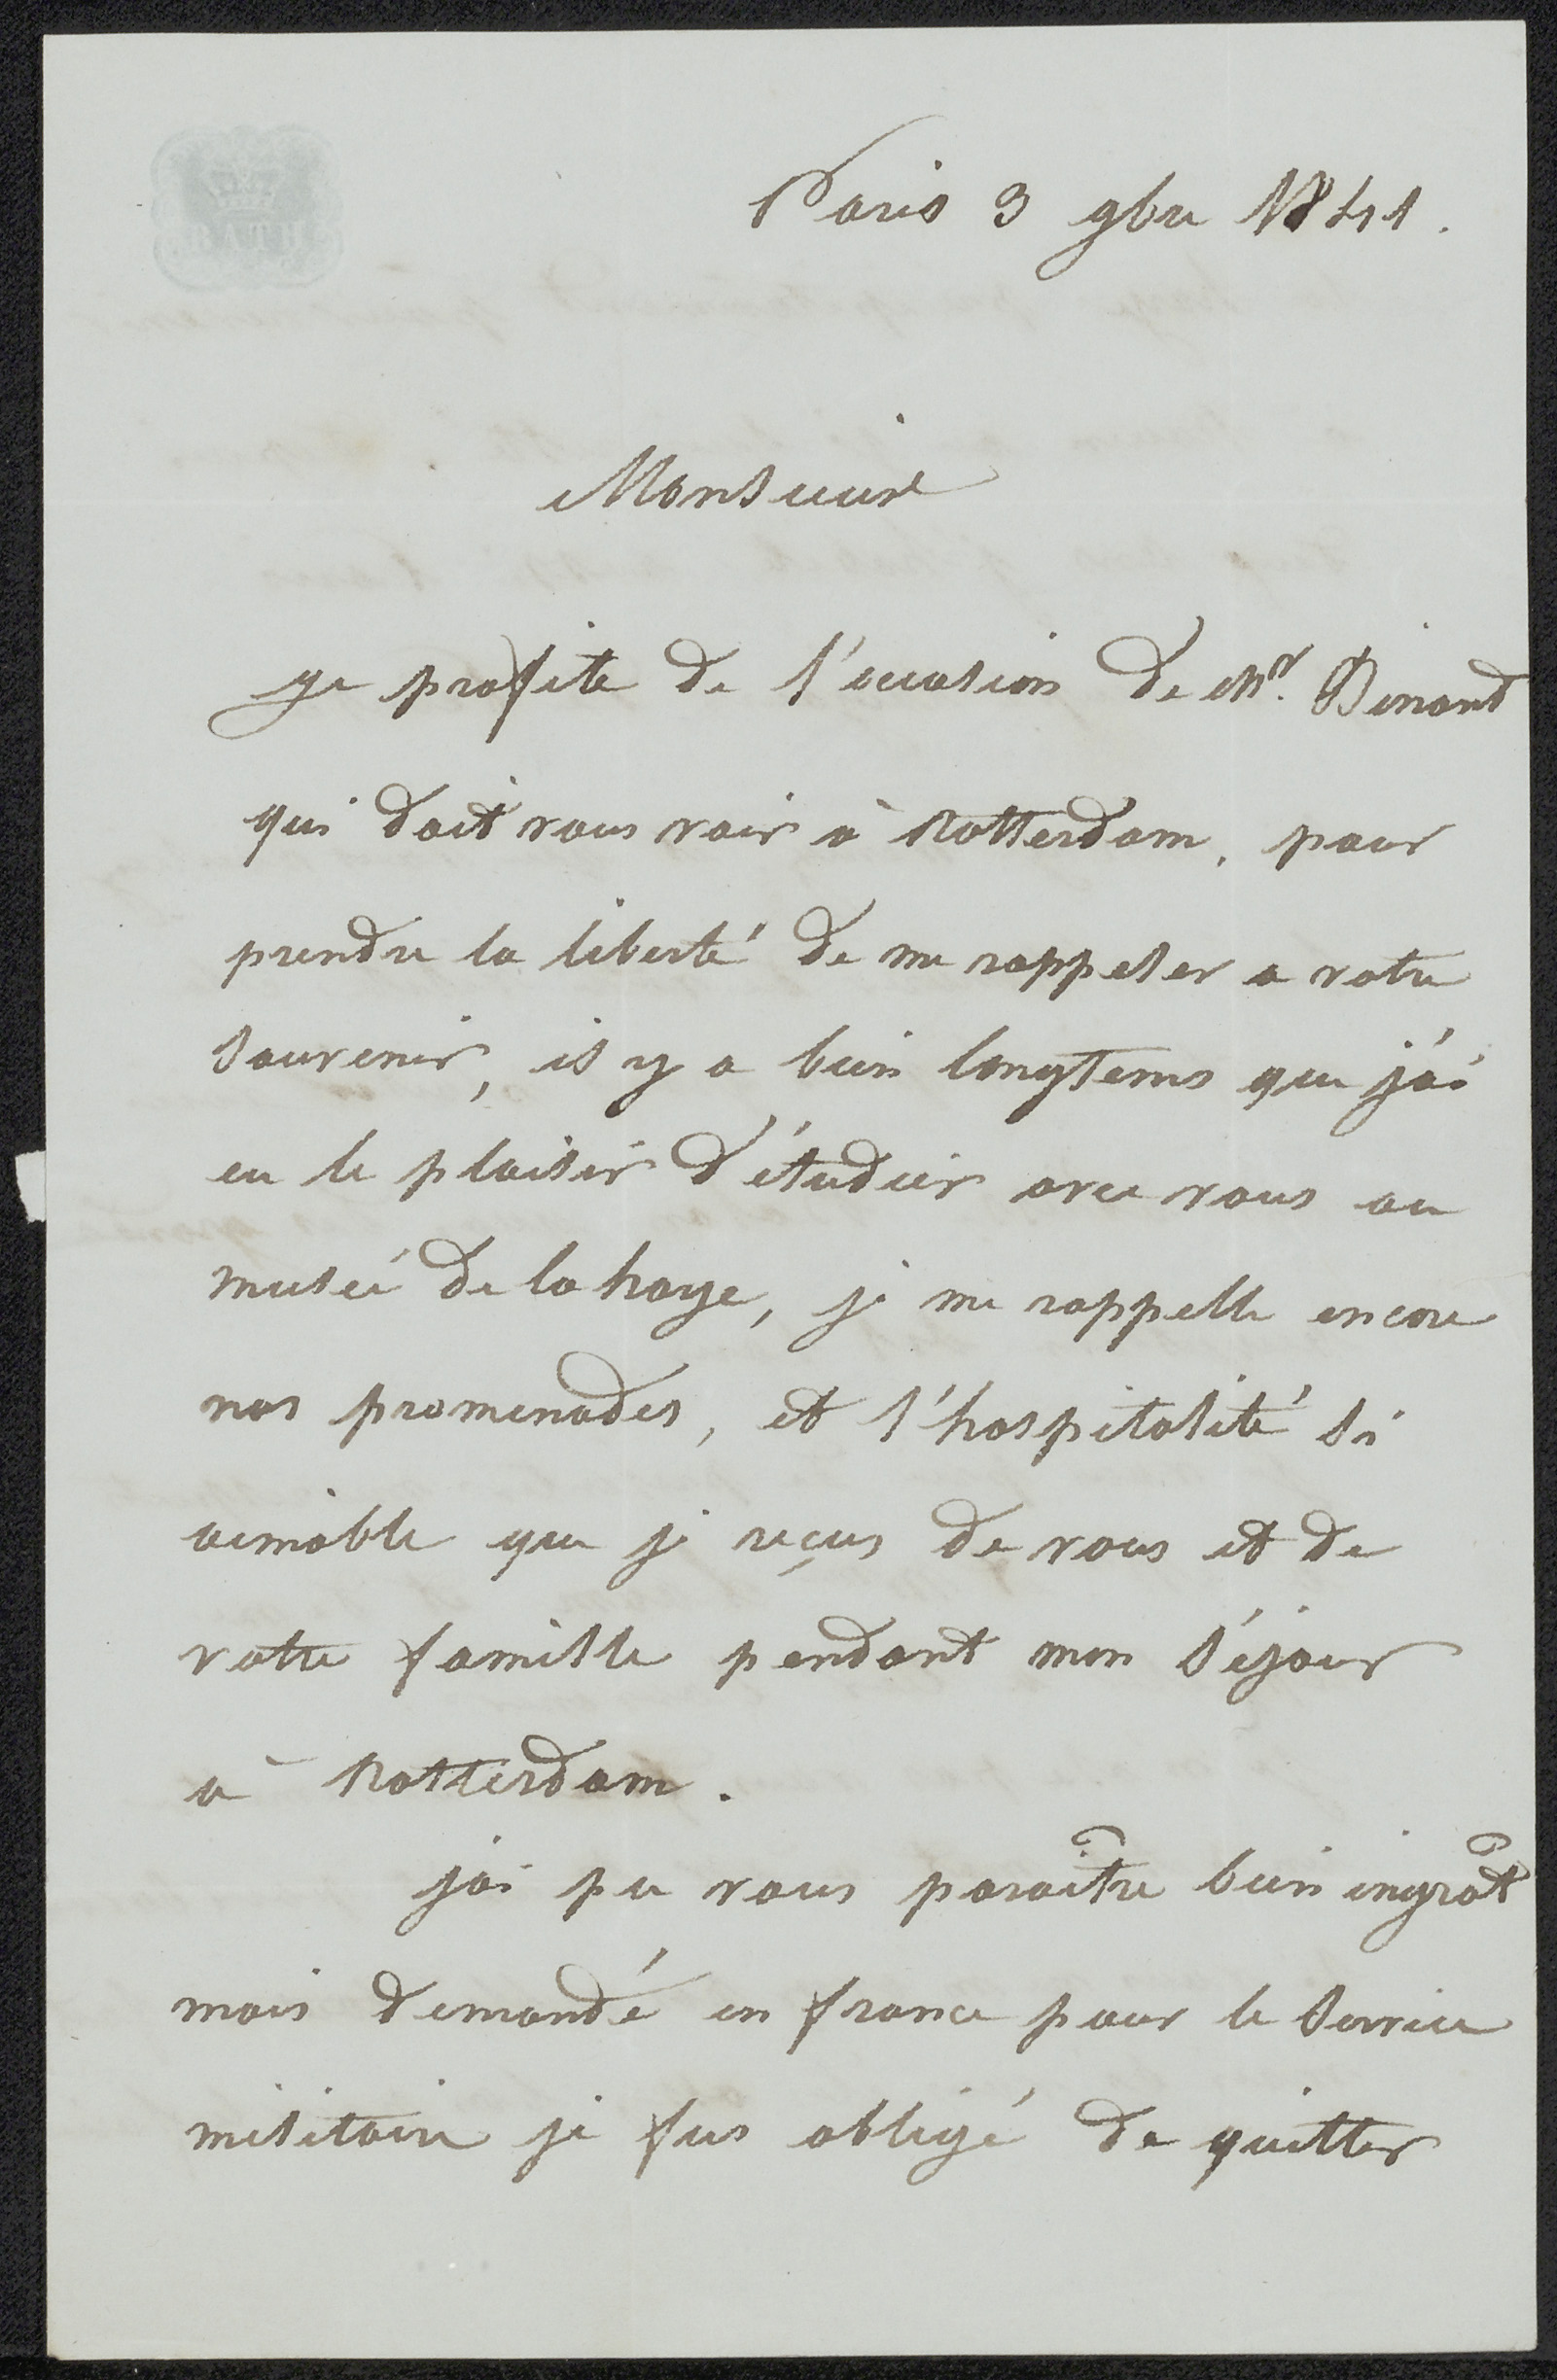 Paris 3 9bre 1841.
Monsieur
je profite de l'occasion de Mr. Binant
qui doit vous voir à Rotterdam, pour
prendre la liberté de me rappeler a votre
souvenir, il y a bien longtems que j'ai
eu le plaisir d'étudier avec vous au
museé de la haye, je me rappelle encore
nos promenades, et l'hospitalité si
aimable que je reçus de vous et de
votre famille pendant mon séjour
à Rotterdam.
j'ai pu vous paraître bien ingrât
mais demandé en france pour le service
militaire je fus obligé de quitter